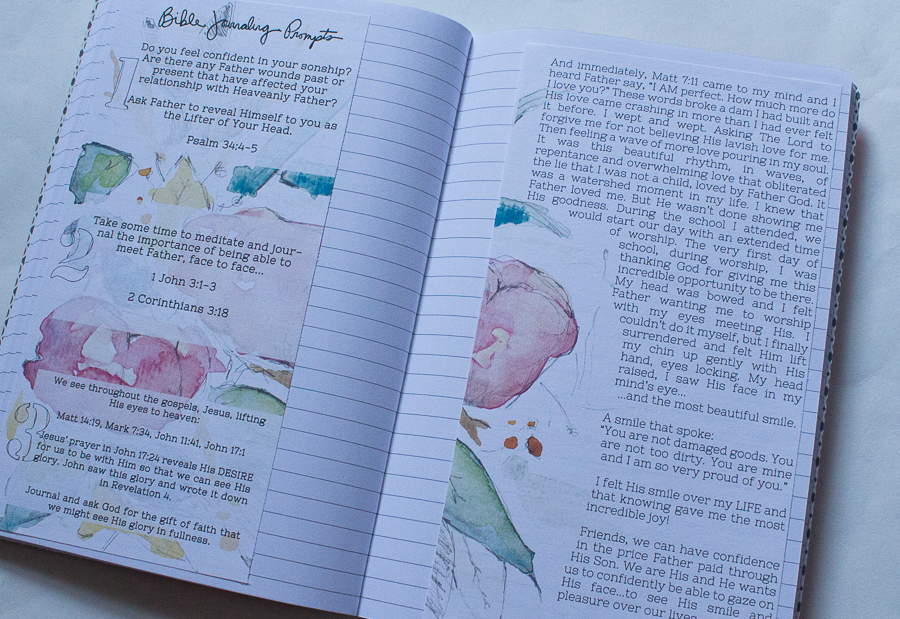 Bible Journaling Prompts
1
Do you feel confident in your sonship?
Are there any Father wounds past or
present that have affected your
relationship with Heavenly Father?
Ask Father to reveal Himself to you as
the Lifter of Your Head.
Psalm 34:4-5
2
Take some time to meditate and jour-
nal the importance of being able to
meet Father, face to face...
1 John 3:1-3
2 Corinthians 3:18
3
We see throughout the gospels, Jesus, lifting
His eyes to heaven:
Matt 14:19, Mark 7:34, John 11:41, John 17:1
Jesus' prayer in John 17:24 reveals His DESIRE
for us to be with Him so that we can see His
glory. John saw this glory and wrote it down
in Revelation 4.
Journal and ask God for the gift of faith that
we might see His glory in fullness.
And immediately, Matt 7:11 came to my mind and I
heard Father say, "I AM perfect. How much more do
I love you?" These words broke a dam I had built and
His love came crashing in more than I had ever felt
it before. I wept and wept. Asking The Lord to
forgive me for not believing His lavish love for me.
Then feeling a wave of more love pouring in my soul.
It was this beautiful rhythm, in waves, of
repentance and overwhelming love that obliterated
the lie that I was not a child, loved by Father God. It
was a watershed moment in my life. I knew that
Father loved me. But He wasn't done showing me
His goodness. During the school I attended, we
would start our day with an extended time
of worship. The very first day of
school, during worship, I was
thanking God for giving me this
incredible opportunity to be there.
My head was bowed and I felt
Father wanting me to worship
with my eyes meeting His. I
couldn't do it myself, but I finally
surrendered and felt Him lift
my chin up gently with His
hand, eyes locking. My head
raised, I saw His face in my
mind's eye...
...and the most beautiful smile.
A smile that spoke:
"You are not damaged goods. You
are not too dirty. You are mine
and I am so very proud of you."
I felt His smile over my LIFE and
that knowing gave me the most
incredible joy!
Friends, we can have confidence
in the price Father paid through
His Son. We are His and He wants
us to confidently be able to gaze on
His face...to see His smile and
pleasure over our lives